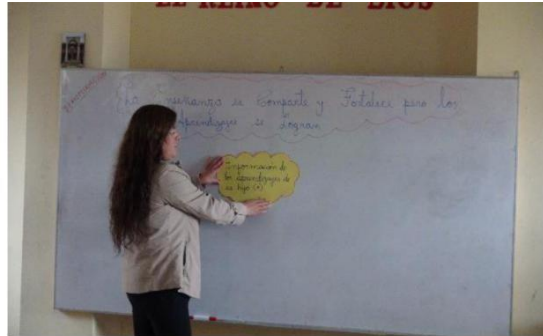 EL REINO DE DIOS
La Enseñanza se Comparte y Fortalece pero los
Aprendizajes se Logran
Información de
los aprendizajes de
su hijo (a)